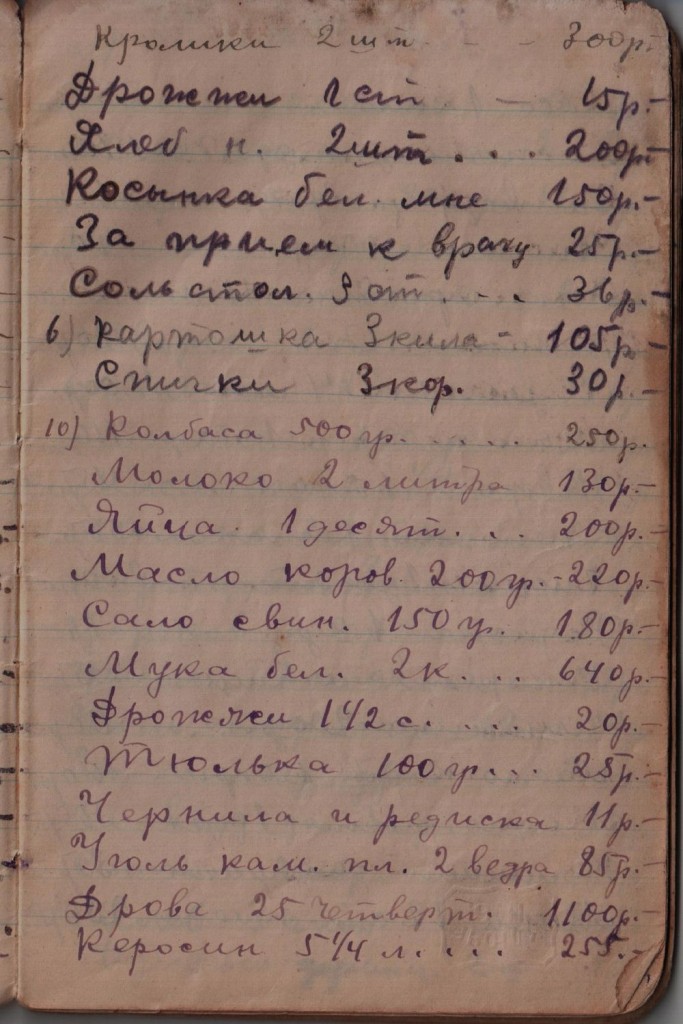 Кролики 2 шт. - - 300р.-
Дрожжи 1 ст - 15р.-
Хлеб н. 2шт. . . 200р.-
Косынка бел. мне 150р.-
За прием к врачу 25р.-
Соль стол. 9 ст. . - . 36р.-
6) Картошка 3 кила - 105р.-
Спички 3 кор. 30р.-
10) Колбаса 500гр. . . . . 250р.
Молоко 2 литра 130р.-
Яйца. 1 десят. . . 200р.-
Масло коров. 200гр.-220р.-
Сало свин. 150гр. 180р.-
Мука бел. 2к. . . 640р.-
Дрожжи 1 1/2 с. . . . 20р.-
Тюлька 100гр. . . 25р.-
Чернила и редиска 11р.-
Уголь кам. пл. 2 ведра 85р.-
Дрова 25 четверт. 1100р.-
Керосин 5 1/4 л. . . . 255.-